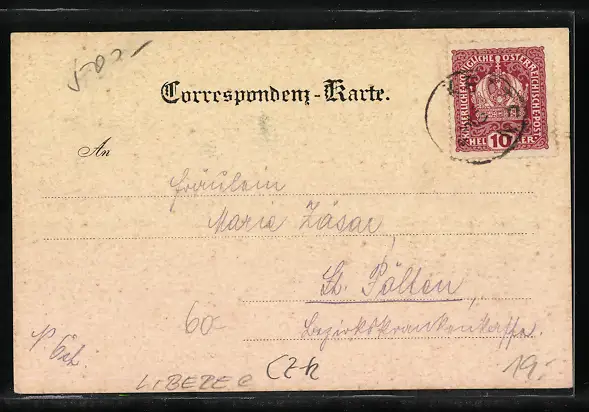 50.-
Correspondenz-Karte.
KAISERLICHE KÖNIGLICHE ÖSTERREICHISCHE POST
HELLER 10
An
Fräulein
Marie Zäsar
St. Pölten
Bezirkskrankenkasse.
60
LIBEREC
CZh
19.-